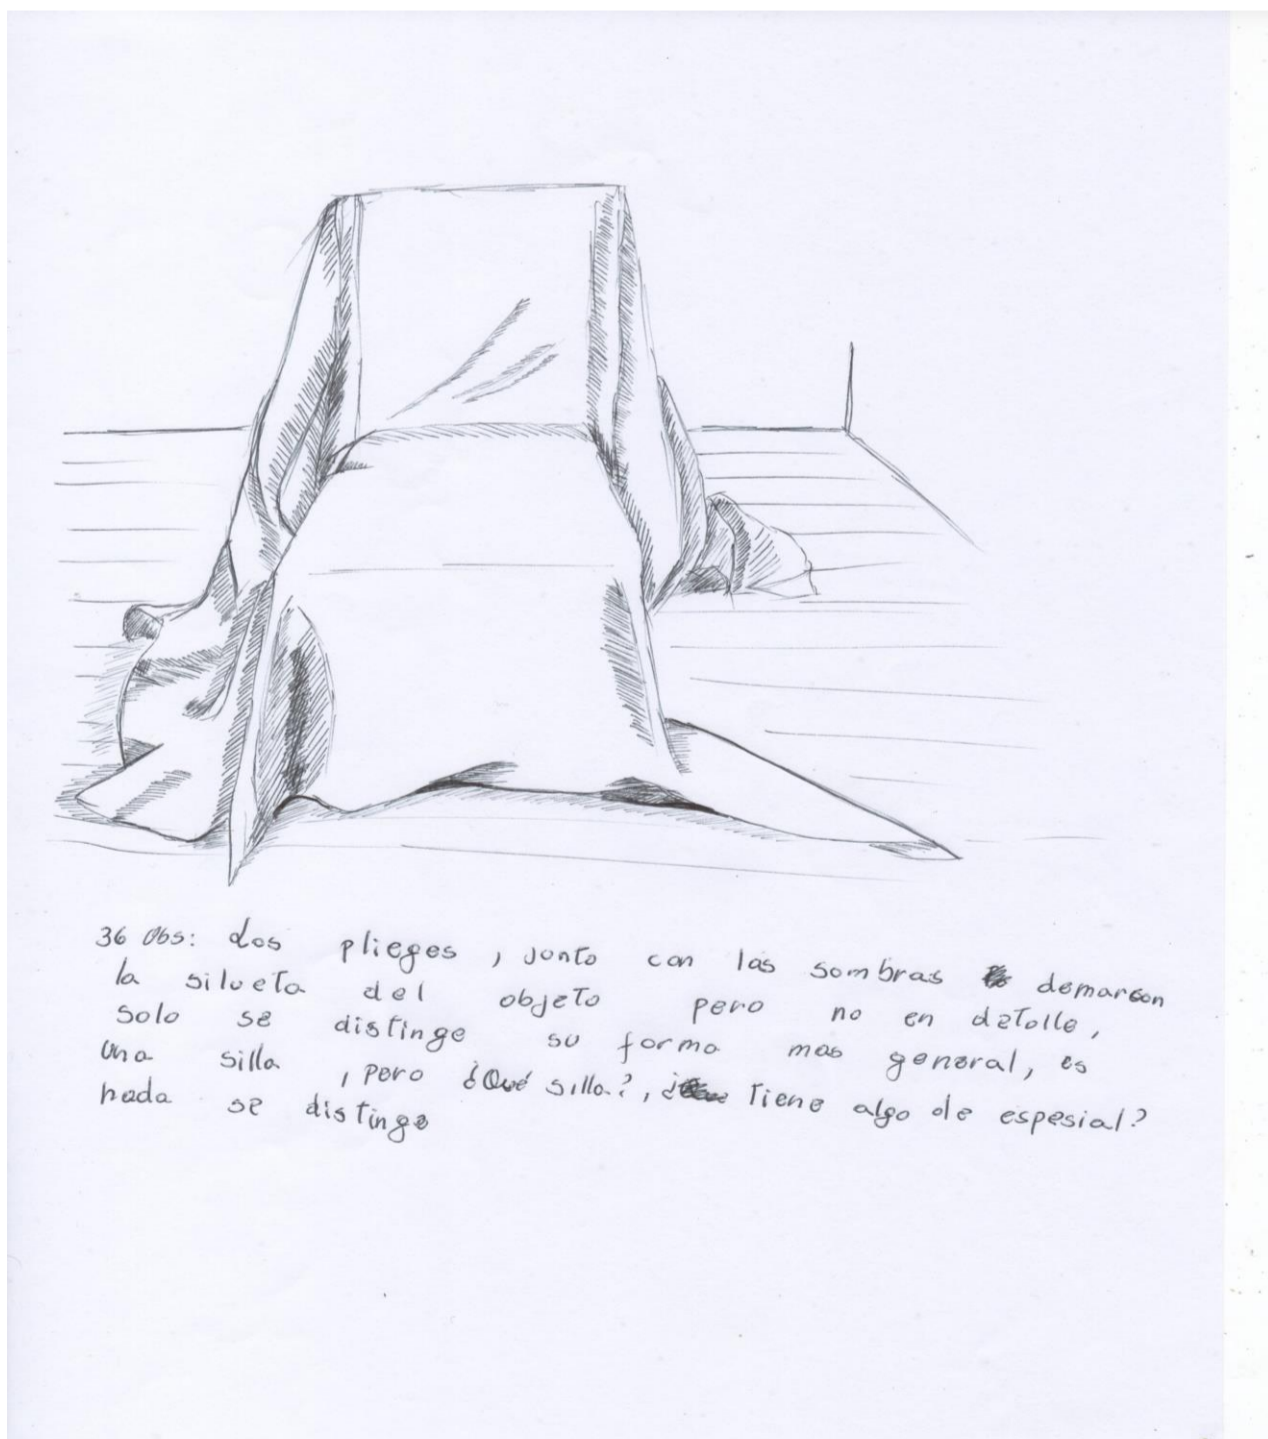 36 Obs: Los plieges, junto con las sombras demarcan
la silueta del objeto pero no en detalle,
solo se distinge su forma mas general, es
una silla, pero ¿Qué silla?, ¿ tiene algo de espesial?
nada se distinge